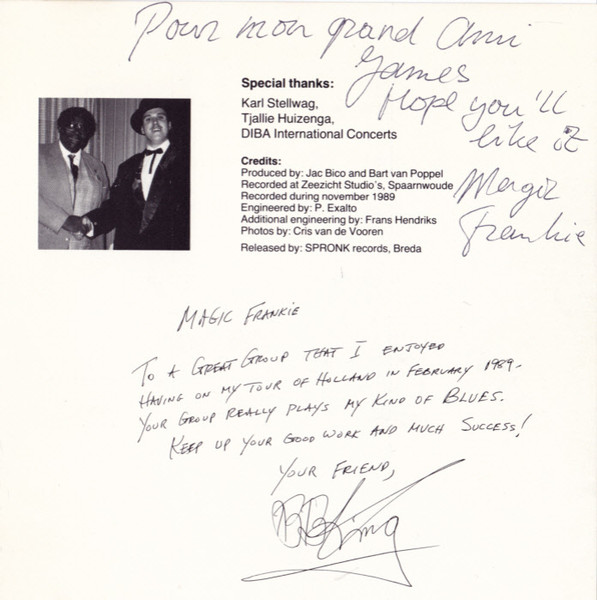 Pour mon grand Ami
James
Hope you'll
like it
Magic
Frankie
Special thanks:
Karl Stellwag,
Tjallie Huizenga,
DIBA International Concerts
Credits:
Produced by: Jac Bico and Bart van Poppel
Recorded at Zeezicht Studio's, Spaarnwoude
Recorded during november 1989
Engineered by: P. Exalto
Additional engineering by: Frans Hendriks
Photos by: Cris van de Vooren
Released by: SPRONK records, Breda
MAGIC FRANKIE
TO A GREAT GROUP THAT I ENJOYED
HAVING ON MY TOUR OF HOLLAND IN FEBRUARY 1989.
YOUR GROUP REALLY PLAYS MY KIND OF BLUES.
KEEP UP YOUR GOOD WORK AND MUCH SUCCESS!
YOUR FRIEND,
BB King